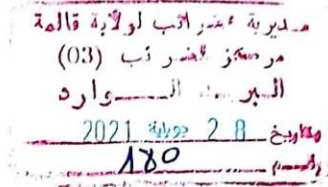 مديرية الضرائب لولاية قالمة
مركز الضرائب (03)
البريد الوارد
بتاريخ 28 جويلية 2021
رقم 180